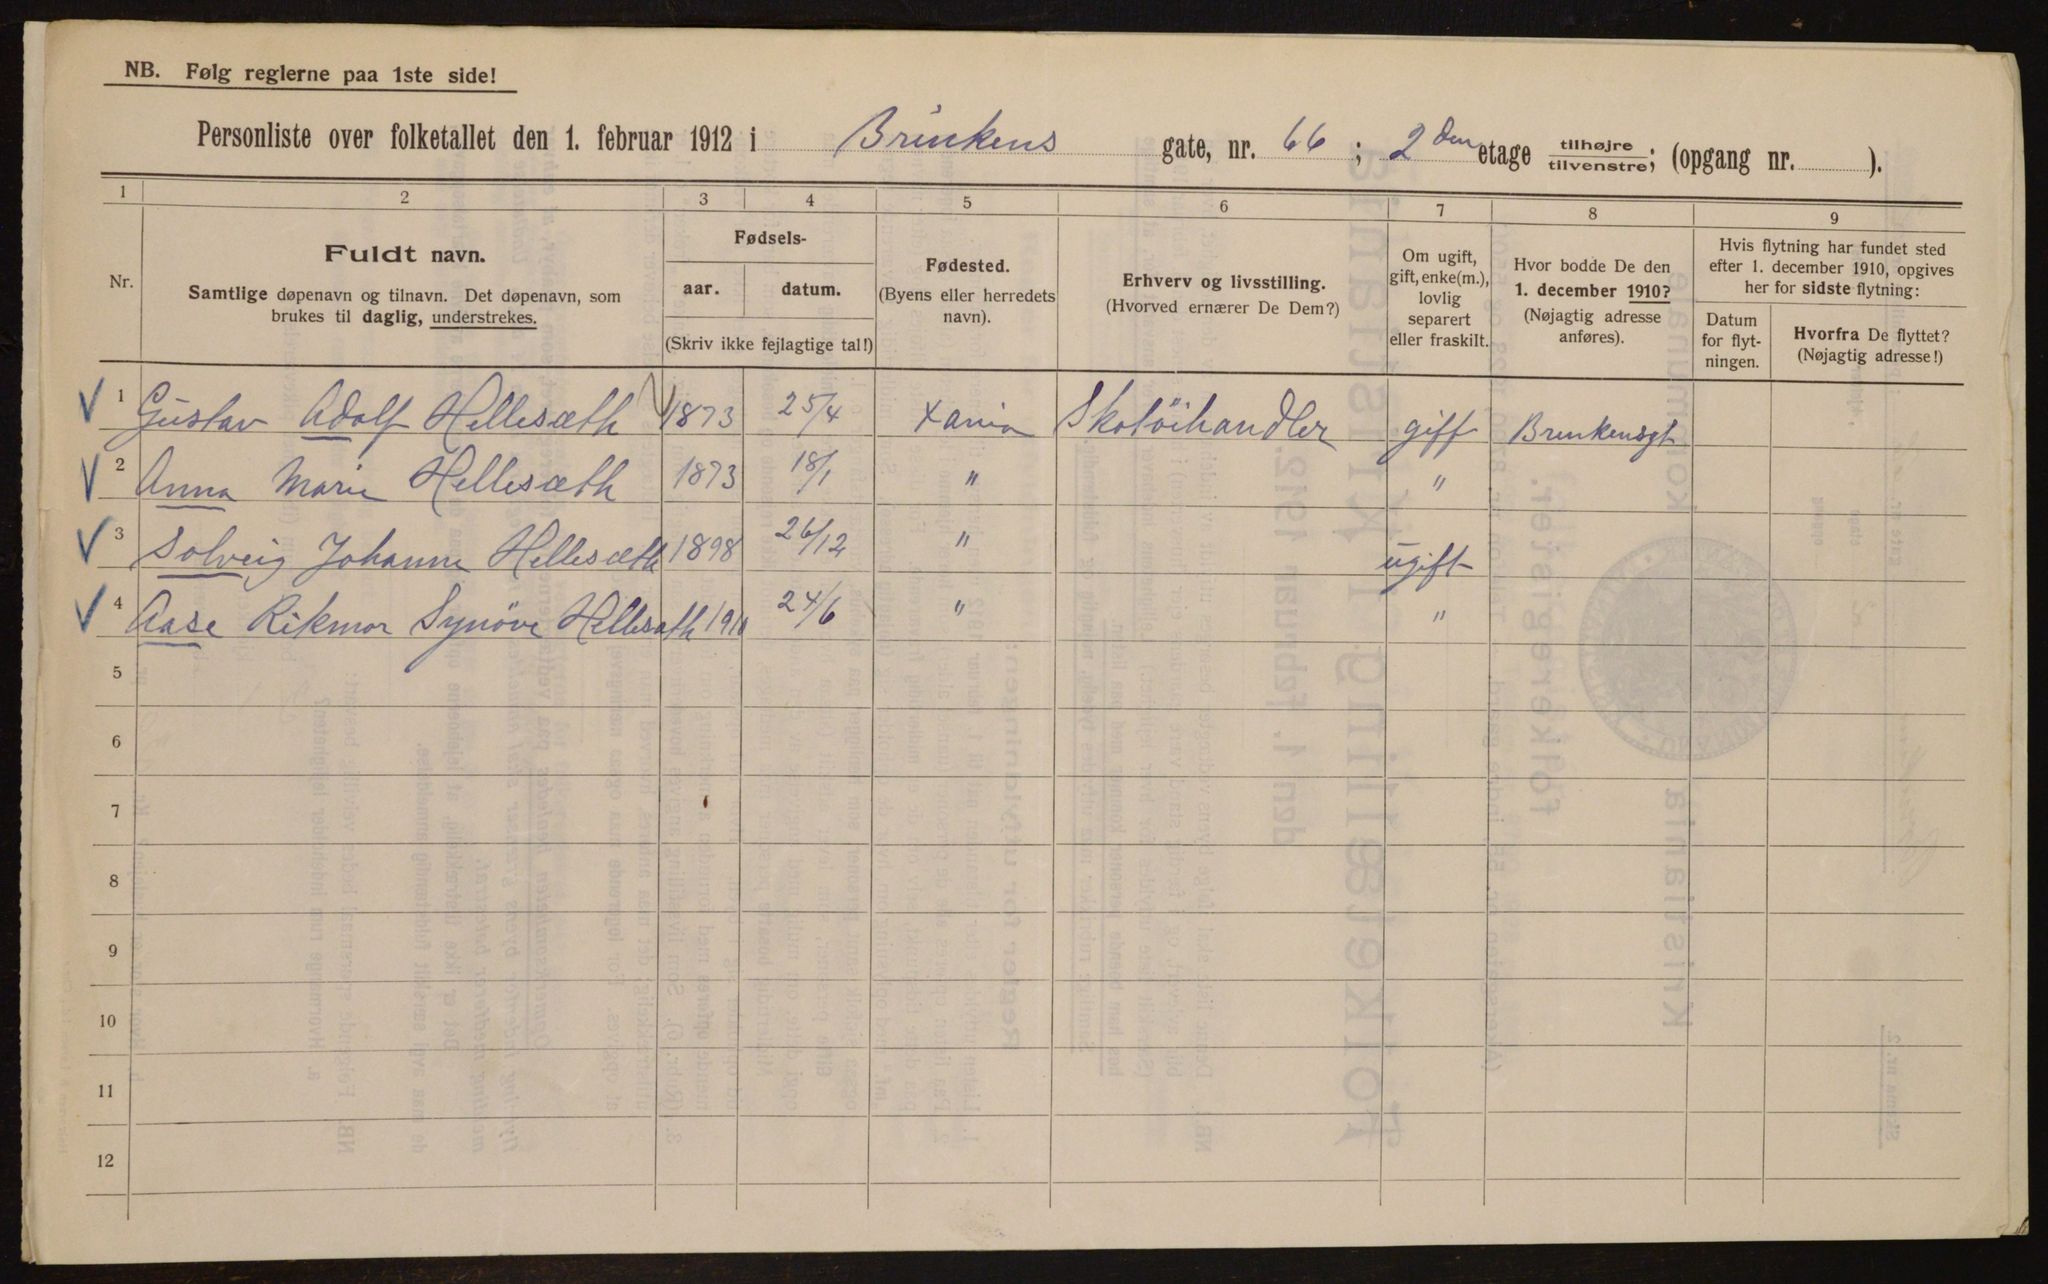 NB. Følg reglerne paa 1ste side!
Personliste over folketallet den 1. februar 1912 i Brinkens gate, nr. 66 ; 2den etage tilhøjre tilvenstre; (opgang nr. ).
1 2 3 4 5 6 7 8 9
Nr.
Fuldt navn.
Samtlige døpenavn og tilnavn. Det døpenavn, som
brukes til daglig, understrekes.
Fødsels-
aar. datum.
(Skriv ikke fejlagtige tal!)
Fødested.
(Byens eller herredets
navn).
Erhverv og livsstilling.
(Hvorved ernærer De Dem?)
Om ugift,
gift, enke(m.),
lovlig
separert
eller fraskilt.
Hvor bodde De den
1. december 1910?
(Nøjagtig adresse
anføres).
Hvis flytning har fundet sted
efter 1. december 1910, opgives
her for sidste flytning:
Datum
for flyt-
ningen.
Hvorfra De flyttet?
(Nøjagtig adresse!)
1 Gustav Adolf Hellesæth 1873 25/4 Xania Skotöihandler gift Brinkensgt
2 Anna Marie Hellesæth 1873 18/1 " "
3 Solveig Johanne Hellesæth 1898 26/12 " ugift
4 Aase Rikmor Synöve Hellesæth 1910 24/6 " "
5
6
7
8
9
10
11
12